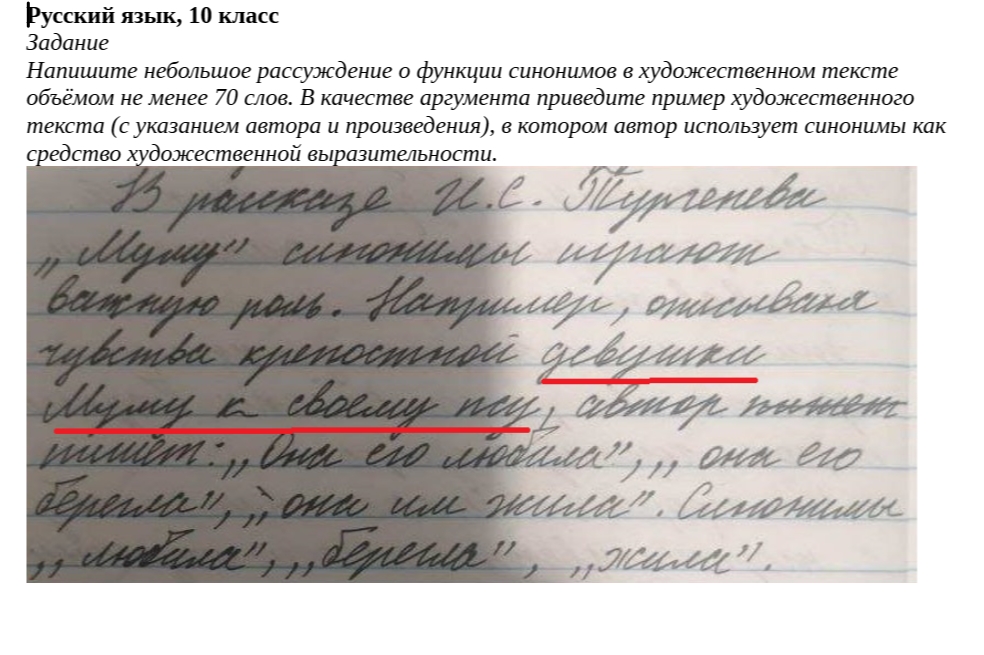 Русский язык, 10 класс
Задание
Напишите небольшое рассуждение о функции синонимов в художественном тексте
объёмом не менее 70 слов. В качестве аргумента приведите пример художественного
текста (с указанием автора и произведения), в котором автор использует синонимы как
средство художественной выразительности.
В рассказе И.С. Тургенева
„Муму” синонимы играют
важную роль. Например, описывая
чувства крепостной девушки
Муму к своему псу, автор пишет
пишет: „Она его любила”, „она его
берегла”, „она им жила”. Синонимы
„любила”, „берегла”, „жила”.